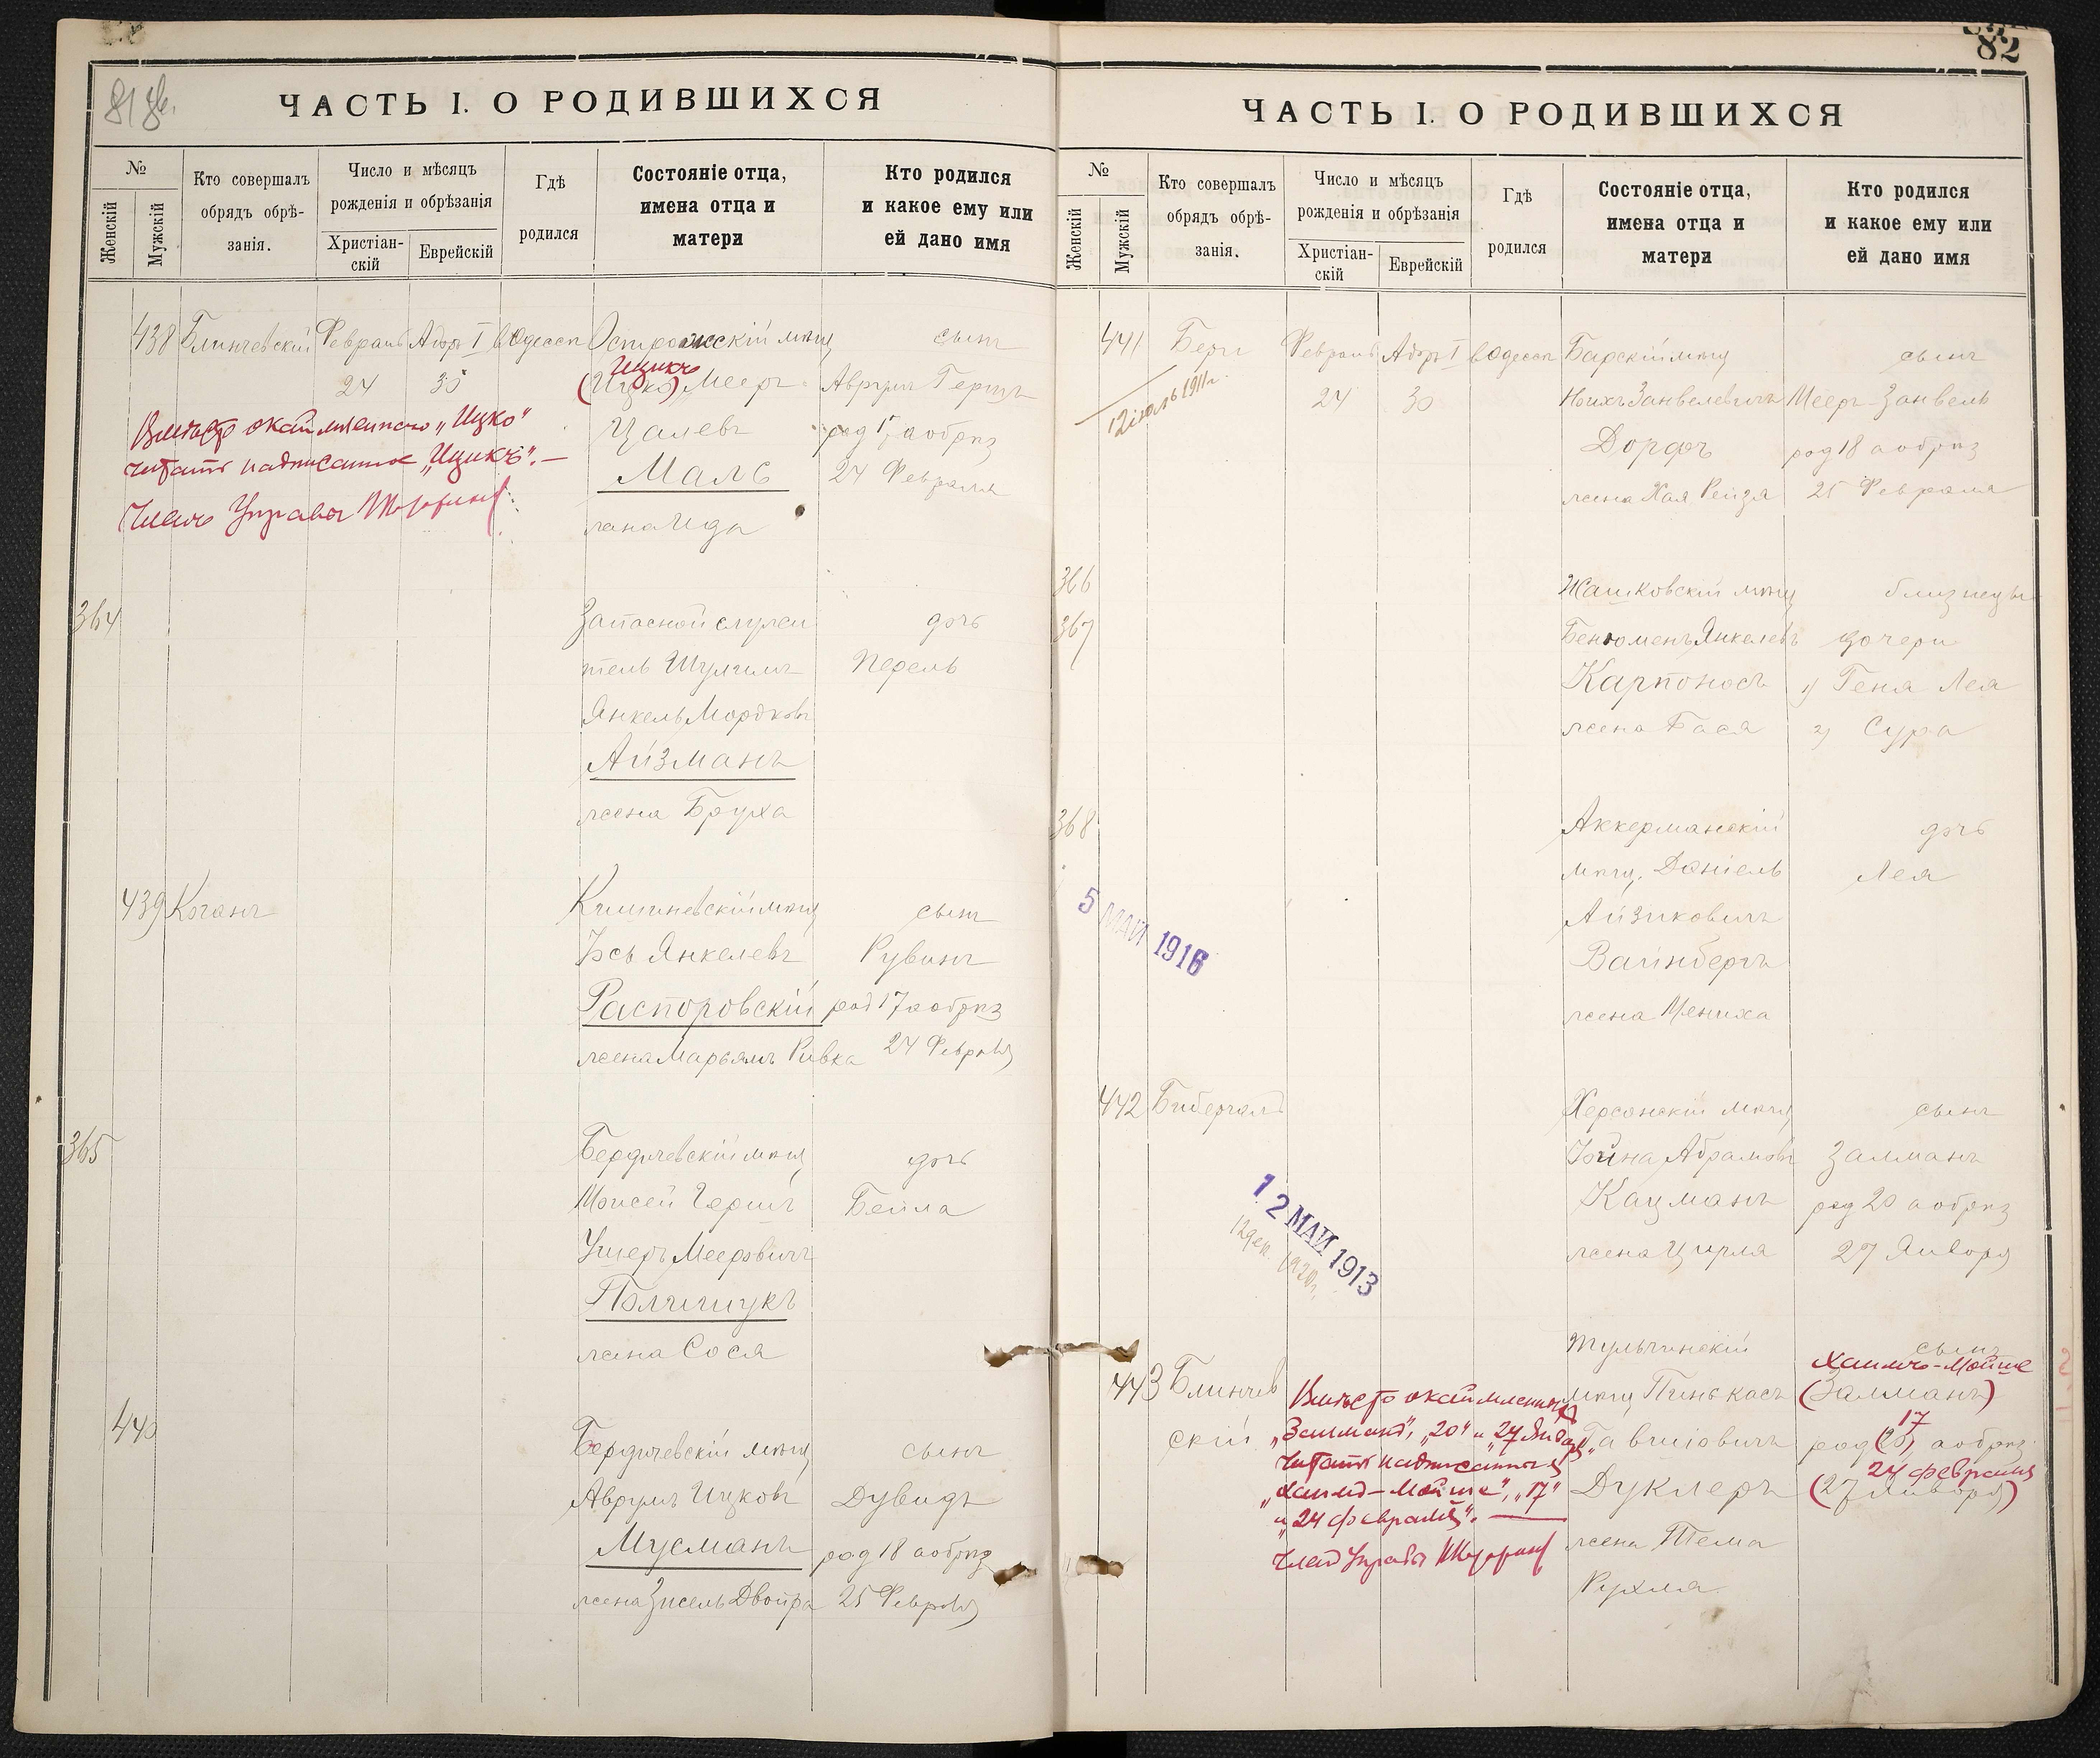 81 об.
ЧАСТЬ I. О РОДИВШИХСЯ
№
Женскій
Мужскій
Кто совершалъ
обрядъ обрѣ-
занія.
Число и мѣсяцъ
рожденія и обрѣзанія
Христіан-
скій
Еврейскій
Гдѣ
родился
Состояніе отца,
имена отца и
матери
Кто родился
и какое ему или
ей дано имя
438 Блинчевскій Февраль Адоръ I в Одессѣ Острожскій мѣщ сынъ
Ицикъ
24 30 (Ицко) Мееръ Аврумъ Гершъ
Цалевъ род 17 а обрѣз
Маль 24 Февраля
жена Ида
Вмѣсто окаймленнаго „Ицко"
читать надписанное „Ицикъ".—
Членъ Управы
364 Запасной служи дочь
тель Шулимъ Перель
Янкель Мордковъ
Айзманъ
жена Бруха
439 Коганъ Кишиневскій мѣщ сынъ
Іось Янкелевъ Рувинъ
Распоровскій род 17 а обрѣз
жена Марьямъ Ривка 24 Февраля
365 Бердичевскій мѣщ дочь
Моисей Гершъ Бейла
Ушеръ Мееровичъ
Полищукъ
жена Сося
440 Бердичевскій мѣщ сынъ
Аврумъ Ицковъ Дувидъ
Мусманъ род 18 а обрѣз
жена Зисель Двойра 25 Февраля
82
ЧАСТЬ I. О РОДИВШИХСЯ
№
Женскій
Мужскій
Кто совершалъ
обрядъ обрѣ-
занія.
Число и мѣсяцъ
рожденія и обрѣзанія
Христіан-
скій
Еврейскій
Гдѣ
родился
Состояніе отца,
имена отца и
матери
Кто родился
и какое ему или
ей дано имя
441 Бери Февраль Адоръ I в Одессѣ Барскій мѣщ сынъ
24 30 Занвелевичъ Мееръ Занвель
12 1911 г.
Дорфъ род 18 а обрѣз
жена Хая Рейзя 25 Февраля
366 Жашковскій мѣщ близнецы
367 Бенюменъ Янкелевъ дочери
Карпоносъ 1) Геня Лея
жена Бася 2) Сура
368 Аккерманскій дочь
мѣщ. Даніель Лея
Айзиковичъ
Вайнбергъ
жена Мениха
5 МАЙ 1916
442 Бибергалъ Херсонскій мѣщ сынъ
Іойна Абрамовъ Залманъ
Кацманъ род 20 а обрѣз
жена Цирля 27 Января
12 МАЙ 1913
12 дек. 1920 г.
Тульчинскій сынъ
Хаимъ-Мойше
443 Блинчев мѣщ Пинькасъ (Залманъ)
скій Гавшіовичъ род (20) 17 а обрѣз
24 февраля
Дуклеръ (27 Января)
жена Тема
Рухля
Вмѣсто окаймленныхъ
„Залманъ", „20" и „27 Января"
читать надписанныя
„Хаимъ-Мойше", „17"
и „24 февраля".
Членъ Управы